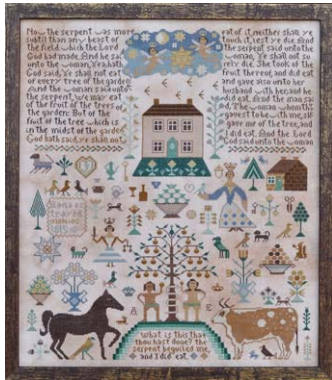 Now the serpent was more
subtil than any beast of
the field which the Lord
God had made. And he said
unto the woman, Yea, hath
God said, Ye shall not eat
of every tree of the garden
And the woman said unto
the serpent, we may eat
of the fruit of the trees of
the garden: But of the
fruit of the tree which is
in the midst of the garden
God hath said, ye shall not
eat of it, neither shall ye
touch it, lest ye die. And
the serpent said unto the
woman, Ye shall not su
rely die. She took of the
fruit thereof, and did eat
and gave also unto her
husband with her, and he
did eat. And the man sai
d, The woman whom th
gavest to be with me, sh
gave me of the tree, and
I did eat. And the Lord
God said unto the woman
What is this that
thou hast done? the
serpent beguiled me,
and I did eat.